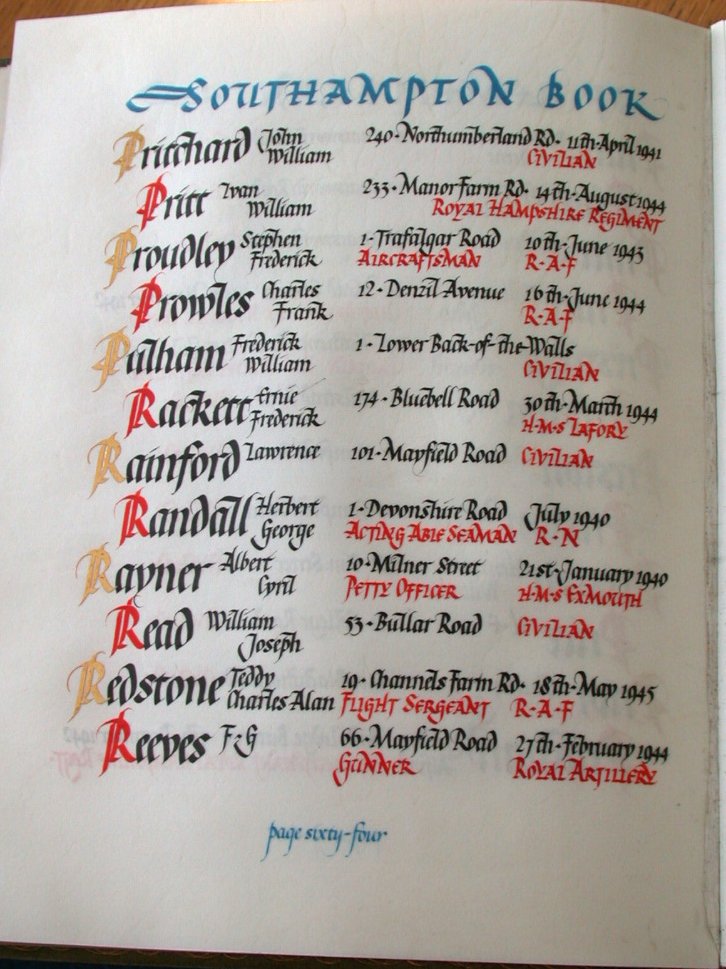 SOUTHAMPTON BOOK
Pritchard John William 240·Northumberland Rd· 11th·April 1941
CIVILIAN
Pritt Ivan William 233·Manor Farm Rd· 14th·August 1944
ROYAL HAMPSHIRE REGIMENT
Proudley Stephen Frederick 1·Trafalgar Road 10th·June 1943
AIRCRAFTSMAN R·A·F
Prowles Charles Frank 12·Denzil Avenue 16th·June 1944
R·A·F
Pulham Frederick William 1·Lower Back-of-the-Walls
CIVILIAN
Rackett Ernie Frederick 174·Bluebell Road 30th·March 1944
H·M·S LAFORY
Rainford Lawrence 101·Mayfield Road CIVILIAN
Randall Herbert George 1·Devonshire Road July 1940
ACTING ABLE SEAMAN R·N
Rayner Albert Cyril 10·Milner Street 21st·January 1940
PETTY OFFICER H·M·S EXMOUTH
Read William Joseph 53·Bullar Road CIVILIAN
Redstone Teddy Charles Alan 19·Channels Farm Rd· 18th·May 1945
FLIGHT SERGEANT R·A·F
Reeves F·G 66·Mayfield Road 27th·February 1944
GUNNER ROYAL ARTILLERY
page sixty-four